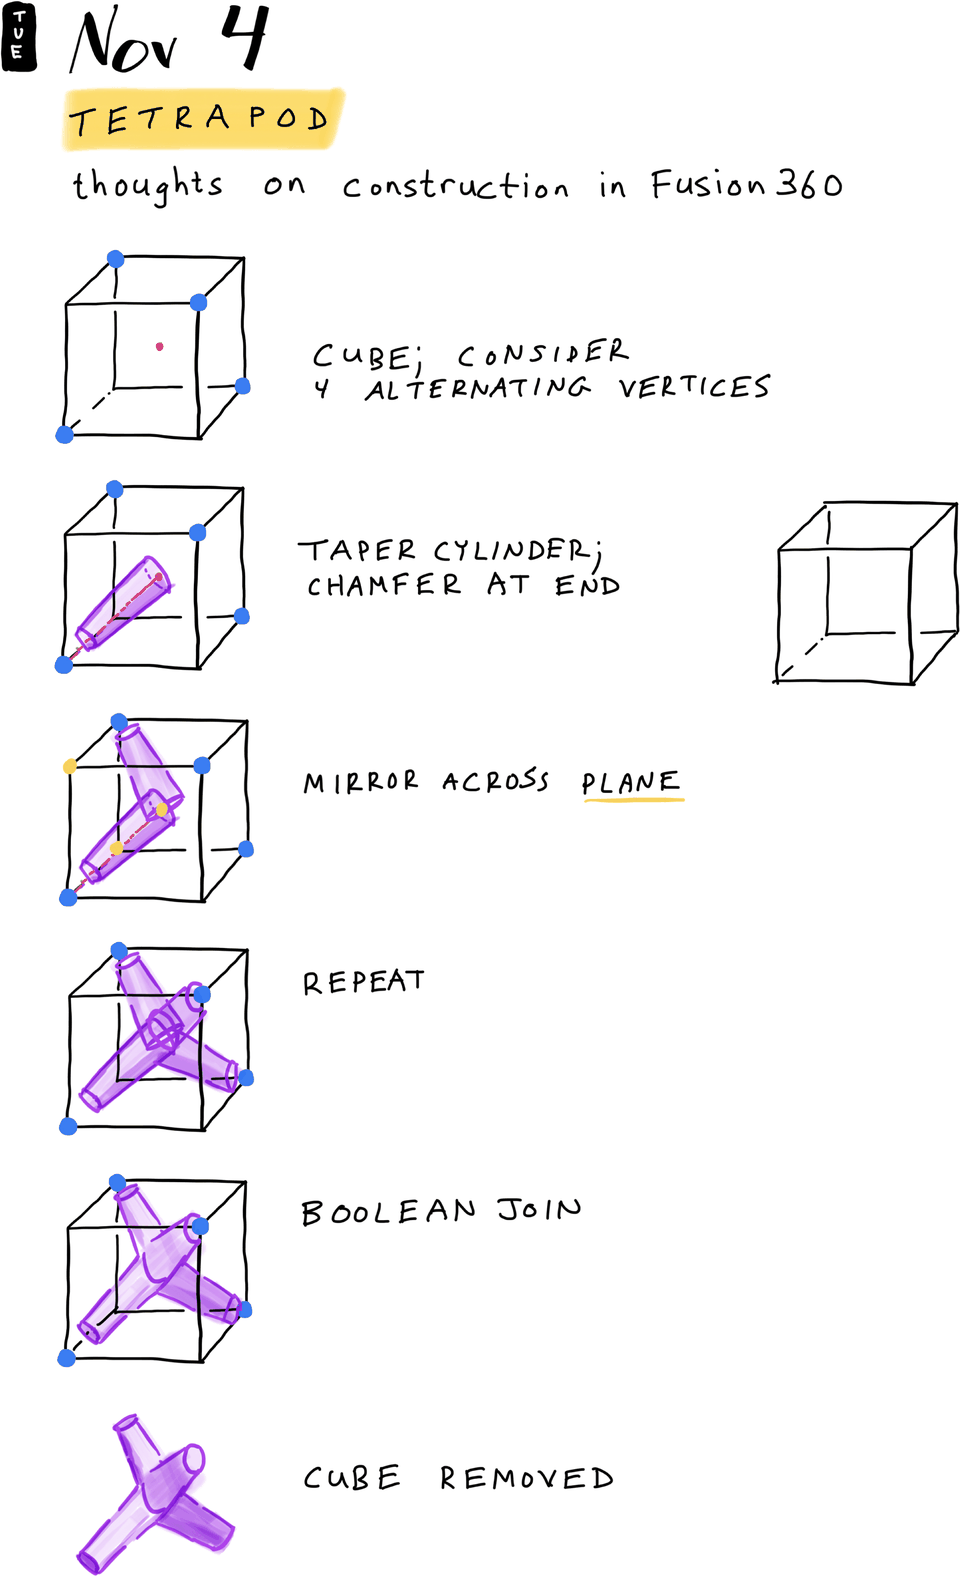 TUE
Nov 4
TETRAPOD
thoughts on construction in Fusion 360
CUBE; CONSIDER
4 ALTERNATING VERTICES
TAPER CYLINDER;
CHAMFER AT END
MIRROR ACROSS PLANE
REPEAT
BOOLEAN JOIN
CUBE REMOVED